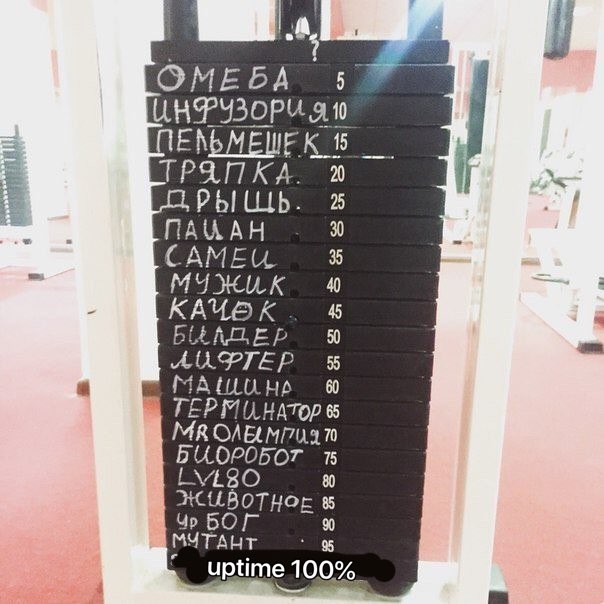 ?
ОМЕБА 5
ИНФУЗОРИЯ 10
ПЕЛЬМЕШЕК 15
ТРЯПКА. 20
ДРЫЩЬ. 25
ПАЦАН 30
САМЕЦ 35
МУЖИК 40
КАЧОК 45
БИЛДЕР 50
ЛИФТЕР 55
МАШИНА 60
ТЕРМИНАТОР 65
MR ОЛЫМПИЯ 70
БИОРОБОТ 75
LVL80 80
ЖИВОТНОЕ 85
УР БОГ 90
МУТАНТ 95
uptime 100%